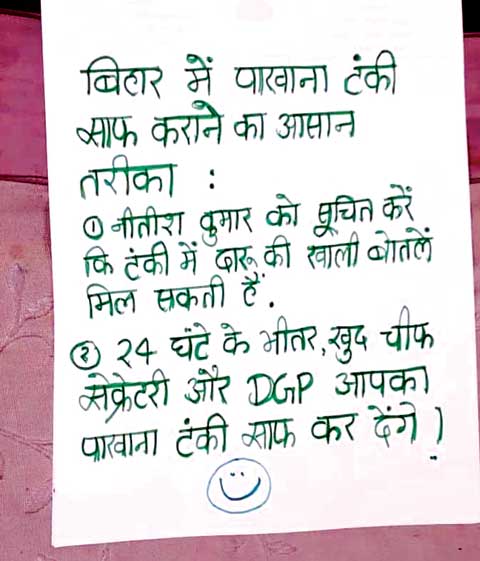 बिहार में पाखाना टंकी
साफ कराने का आसान
तरीका :
① नीतीश कुमार को सूचित करें
कि टंकी में दारू की खाली बोतलें
मिल सकती हैं.
② 24 घंटे के भीतर, खुद चीफ
सेक्रेटरी और DGP आपका
पाखाना टंकी साफ कर देंगे !